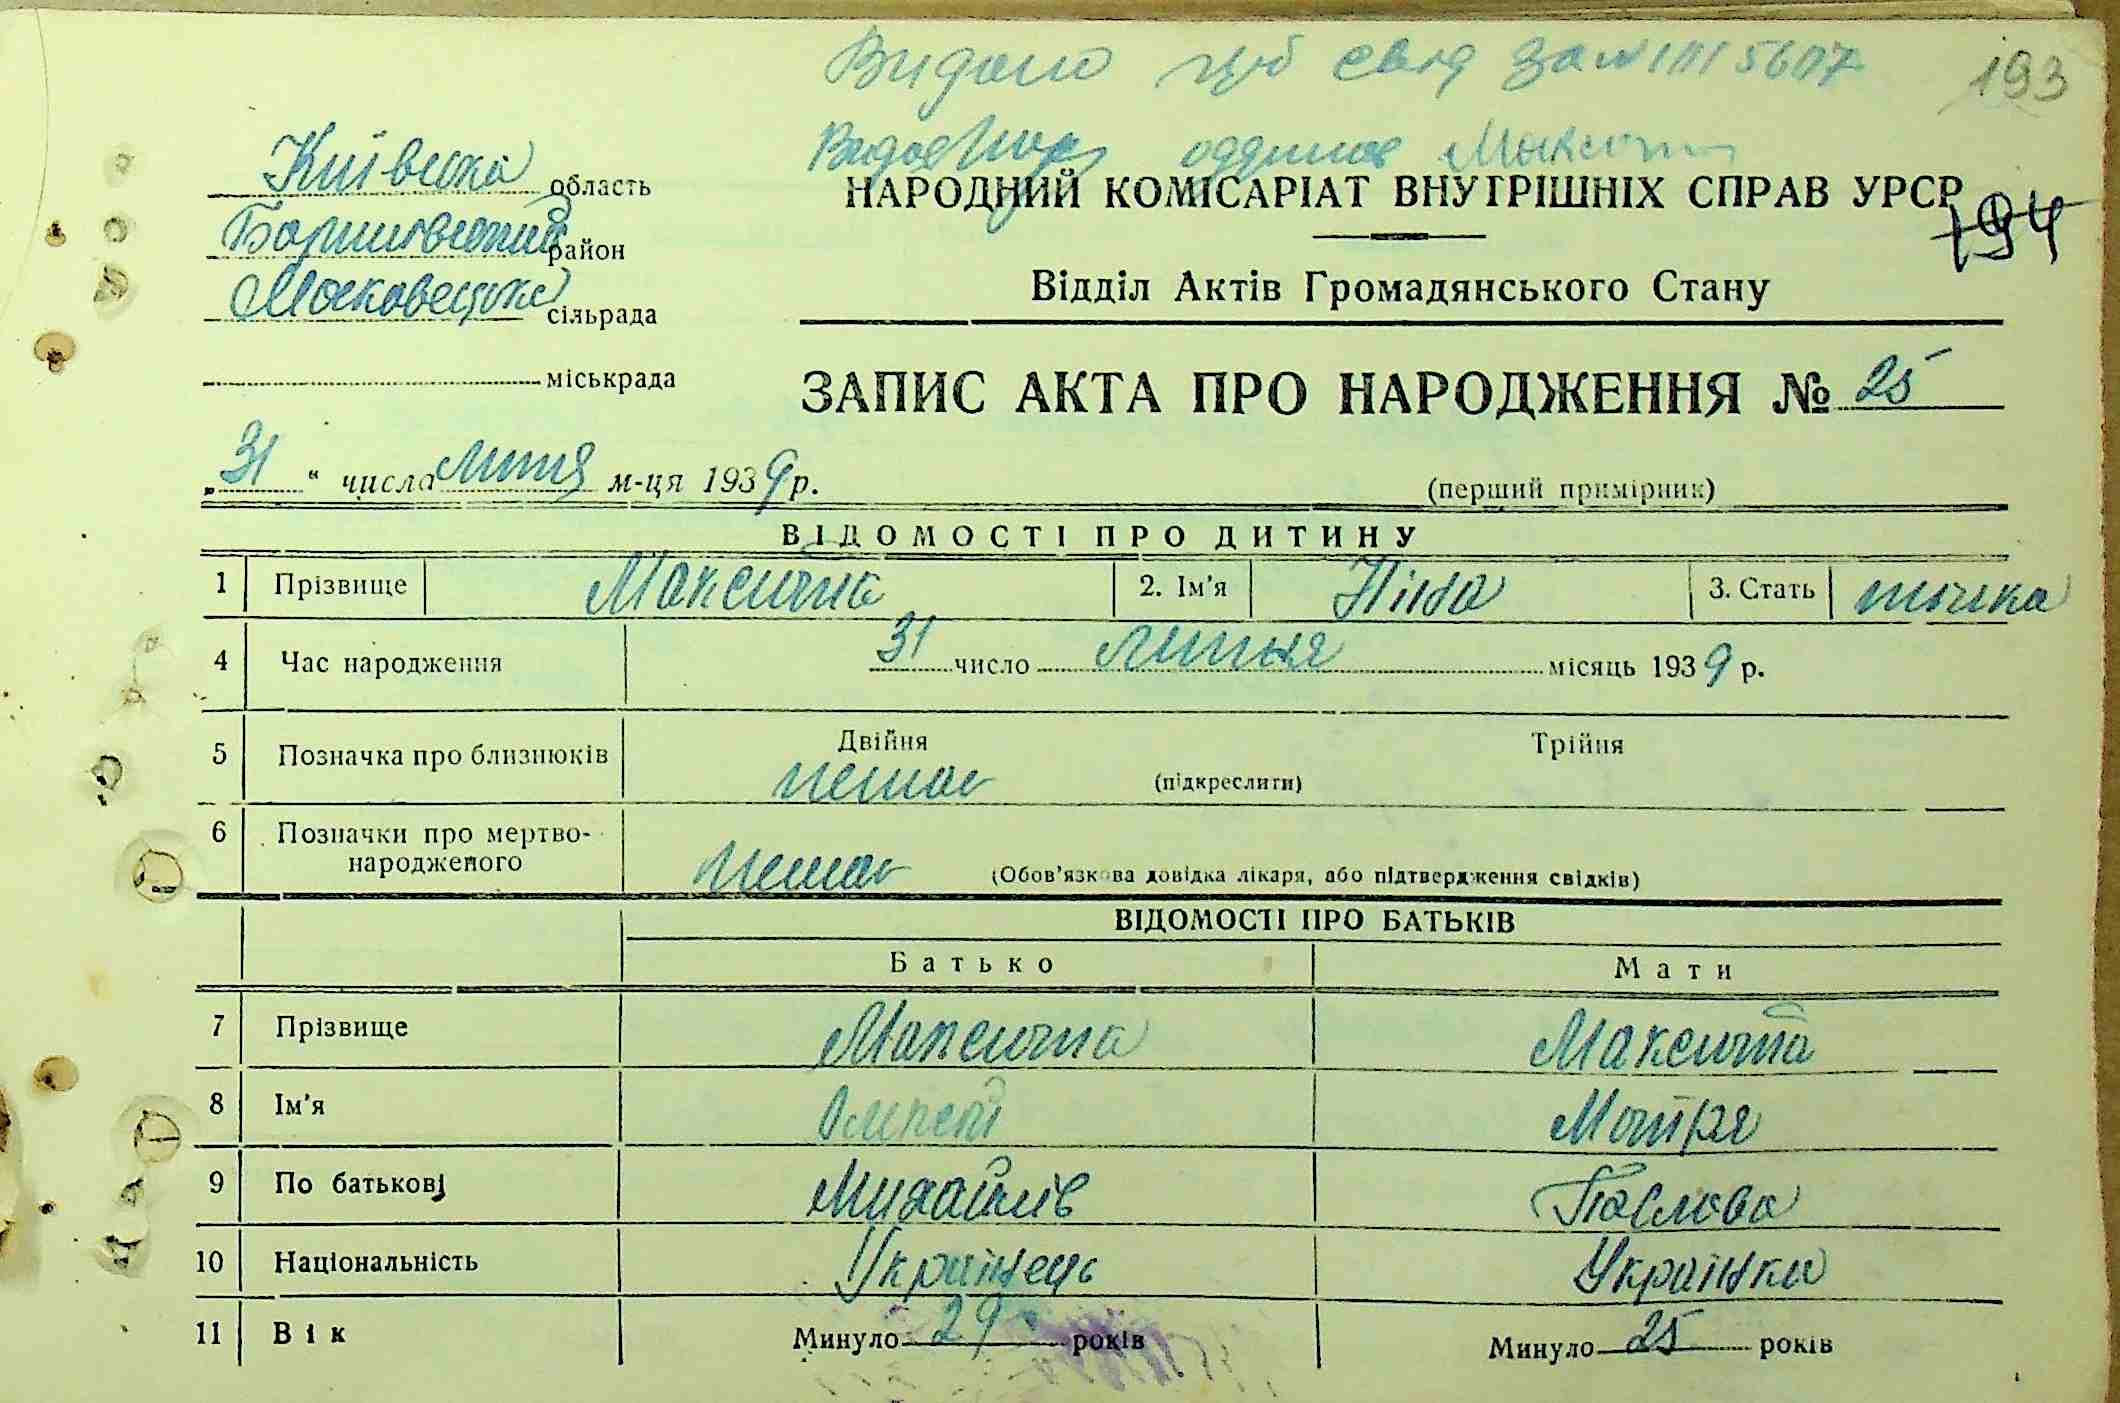 Видано
193
Київська область
НАРОДНИЙ КОМІСАРІАТ ВНУТРІШНІХ СПРАВ УРСР
194
район
Відділ Актів Громадянського Стану
сільрада
міськрада
ЗАПИС АКТА ПРО НАРОДЖЕННЯ № 25
„31“ числа липня м-ця 1939 р.
(перший примірник)
ВІДОМОСТІ ПРО ДИТИНУ
1 Прізвище 2. Ім'я Ніна 3. Стать жіночка
4 Час народження 31 число липня місяць 1939 р.
5 Позначка про близнюків Двійня Трійня
немає (підкреслити)
6 Позначки про мертво-
народженого немає (Обов'язкова довідка лікаря, або підтвердження свідків)
ВІДОМОСТІ ПРО БАТЬКІВ
Батько Мати
7 Прізвище
8 Ім'я Мотря
9 По батькові Михайлів Павлова
10 Національність Українець Українка
11 Вік Минуло 29 років Минуло 25 років